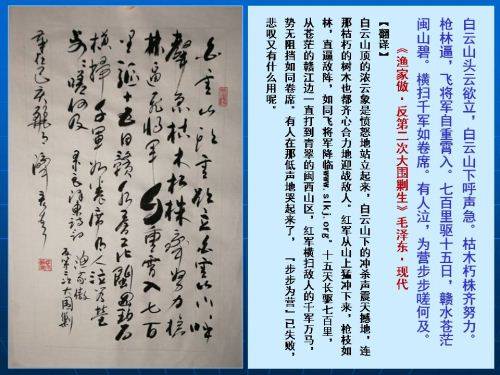 白云山头云欲立,白云山下呼声急。枯木朽株齐努力。
枪林逼,飞将军自重霄入。七百里驱十五日,赣水苍茫
闽山碧。横扫千军如卷席。有人泣,为营步步嗟何及。
《渔家傲·反第二次大围剿生》毛泽东·现代
【翻译】
白云山顶的浓云象是愤怒地站立起来,白云山下的冲杀声震天撼地,连
那枯朽的树木也都齐心合力地迎战敌人。红军从山上猛冲下来,枪枝如
林,直逼敌阵,如同飞将军降临www.slkj.org。十五天长驱七百里,
从苍茫的赣江边一直打到青翠的闽西山区,红军横扫敌人的千军万马,
势无阻挡如同卷席。有人在那低声地哭起来了,「步步为营」已失败,
悲叹又有什么用呢。
白云山头云欲立白云山下呼
声急枯木朽株齐努力枪
林逼飞将军自重霄入七百
里驱十五日赣水苍茫闽山碧
横扫千军如卷席有人泣为营
步步嗟何及
渔家傲
反第二次大围剿